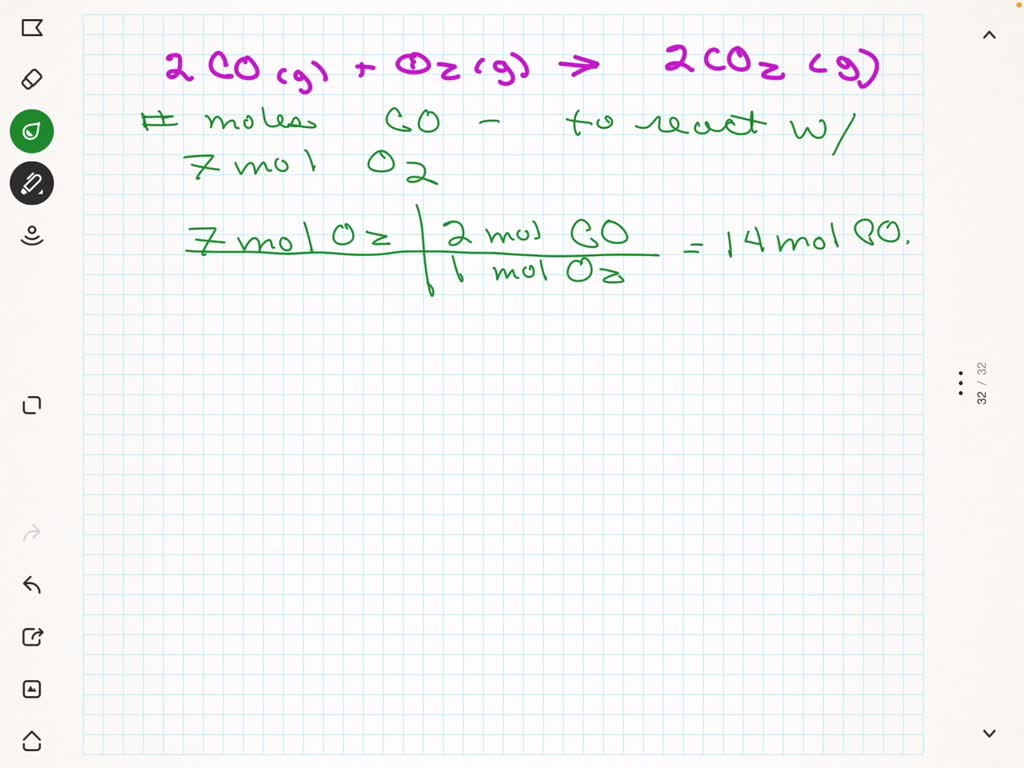 2 CO (g) + O2 (g) → 2CO2 (g)
# moles CO - to react w/
7 mol O2
7 mol O2 | 2 mol CO = 14 mol CO.
1 mol O2
32 / 32